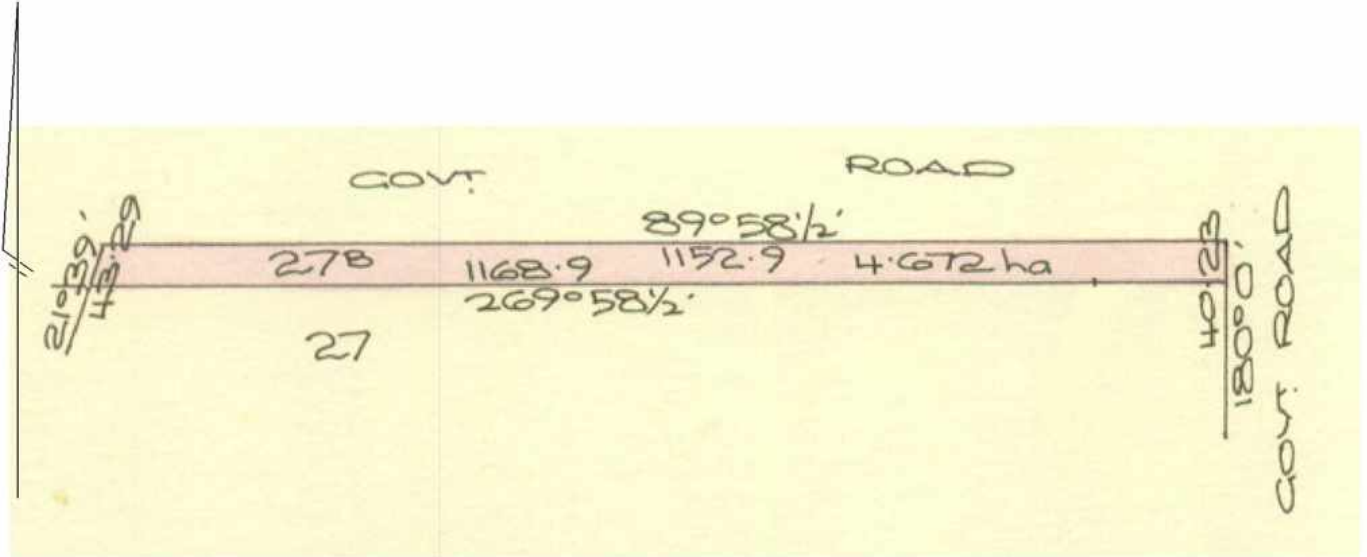 GOVT. ROAD
89°58½'
21°39'
43.29
27B 1168.9 1152.9 4.672 ha
269°58½'
27
40.23
180°0'
GOVT. ROAD